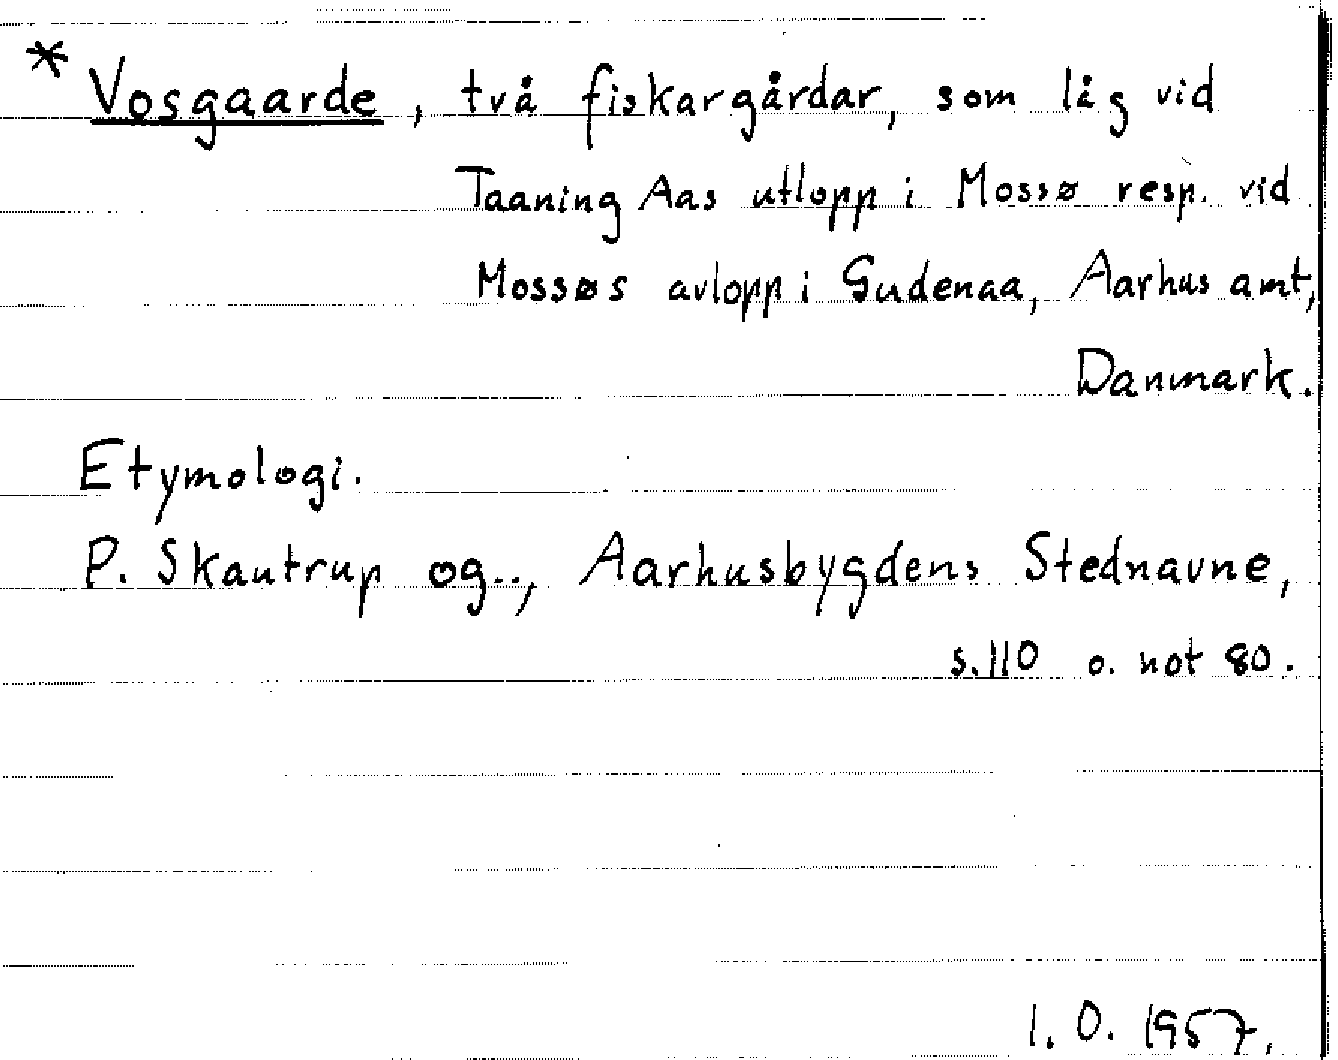 * Vosgaarde, två fiskargårdar, som låg vid
Taaning Aas utlopp i Mossø resp. vid
Mossøs avlopp i Gudenaa, Aarhus amt,
Danmark.
Etymologi.
P. Skautrup og.., Aarhusbygdens Stednavne,
s.110 o. not 80.
I. O. 1957.